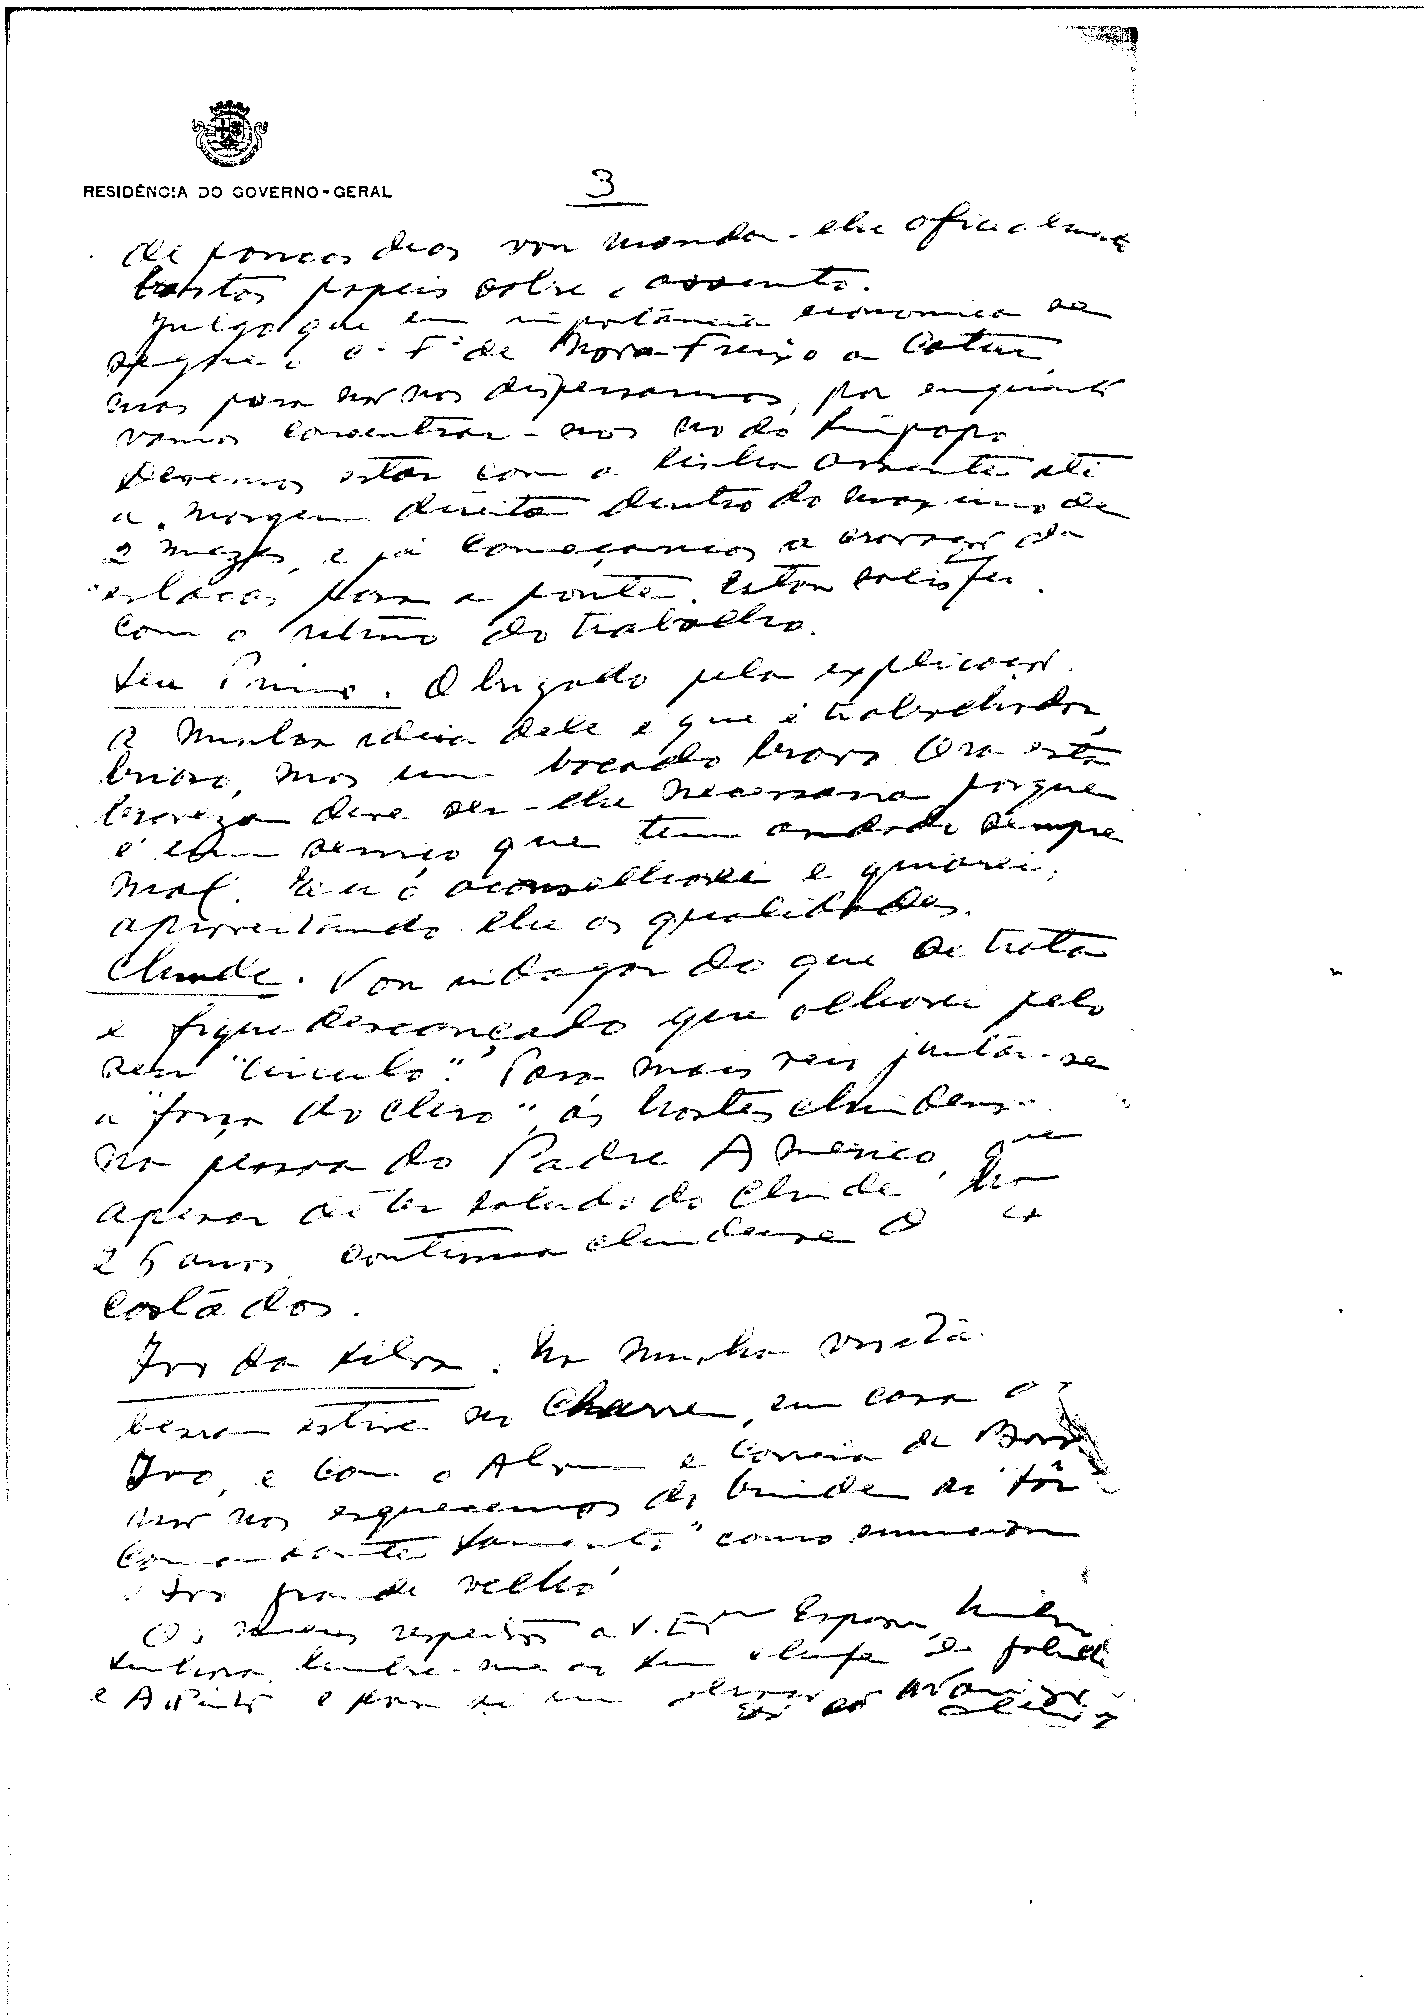 RESIDÊNCIA DO GOVERNO-GERAL
3
de poucos dias vou mandar-lhe oficialmente
bastos papeis sobre o assunto.
Julgo que em importância economica se
segue o C. F. de a
mas para não nos dispersarmos, por enquanto
vamos concentrar-nos no do Limpopo
Devemos estar com a linha assente até
a margem direita dentro do maximo de
2 mezes, e já começamos a cravação das
estacas para a ponte. Estou satisfeito
com o ritmo do trabalho.
Seu Primo. Obrigado pela explicação.
A minha ideia dele é que é trabalhador,
brioso, mas um bocado bravo. Ora esta
braveza deve ser-lhe necessaria porque
é um serviço que tem andado sempre
mal. Eu o aconselharei e guiarei,
aproveitando-lhe as qualidades.
Chinde. Vou indagar do que se trata
e fique descançado que olharei pelo
seu "circulo". Para mais veio juntar-se
a "força do clero", ás hostes chindenses
na pessoa do Padre Americo, que
apesar de ter saido do Chinde ha
25 anos, continua chindense
costados.
Ivo da Silva. Na minha visita
estive no Charre, em casa do
Ivo, e com o e Correia de
não nos esquecemos de brindar
comandante Sarmento" como
Ivo grande velho
Os meus respeitos a V. Exma Esposa, minha
Senhora lembra-me
e e para si um abraço